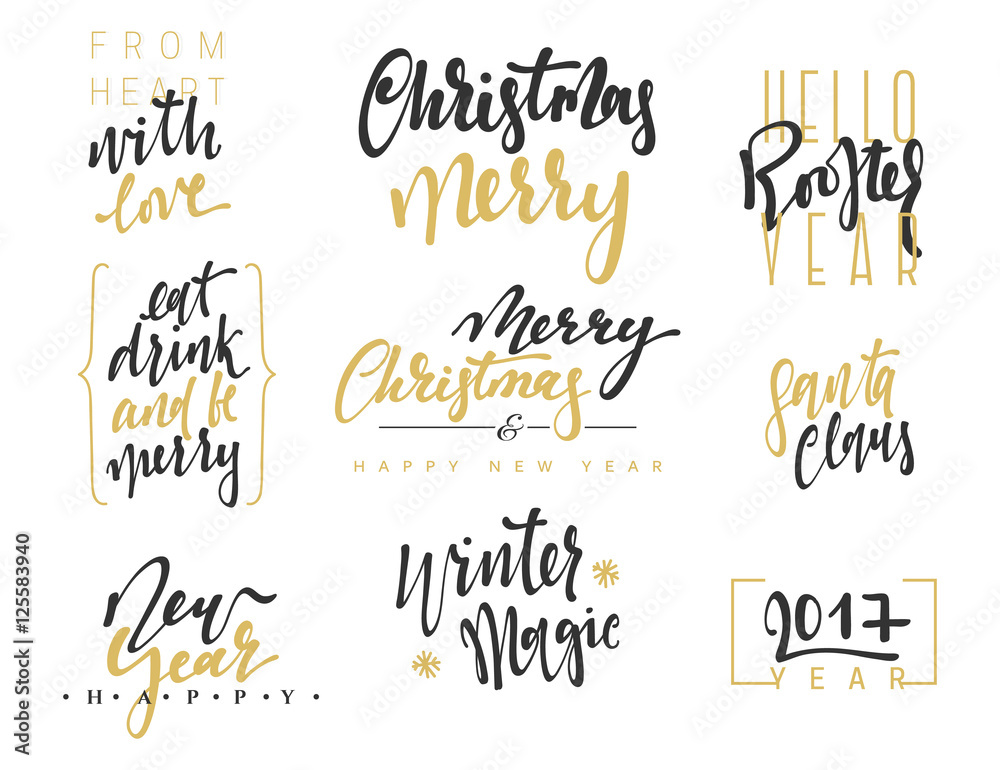 FROM
HEART
with
love
Christmas
Merry
HELLO
Rooster
YEAR
eat
drink
and be
merry
Merry
Christmas
&
HAPPY NEW YEAR
Santa
Claus
New
Year
• H • A • P • P • Y •
Winter
Magic
2017
YEAR
Adobe Stock | #125583940